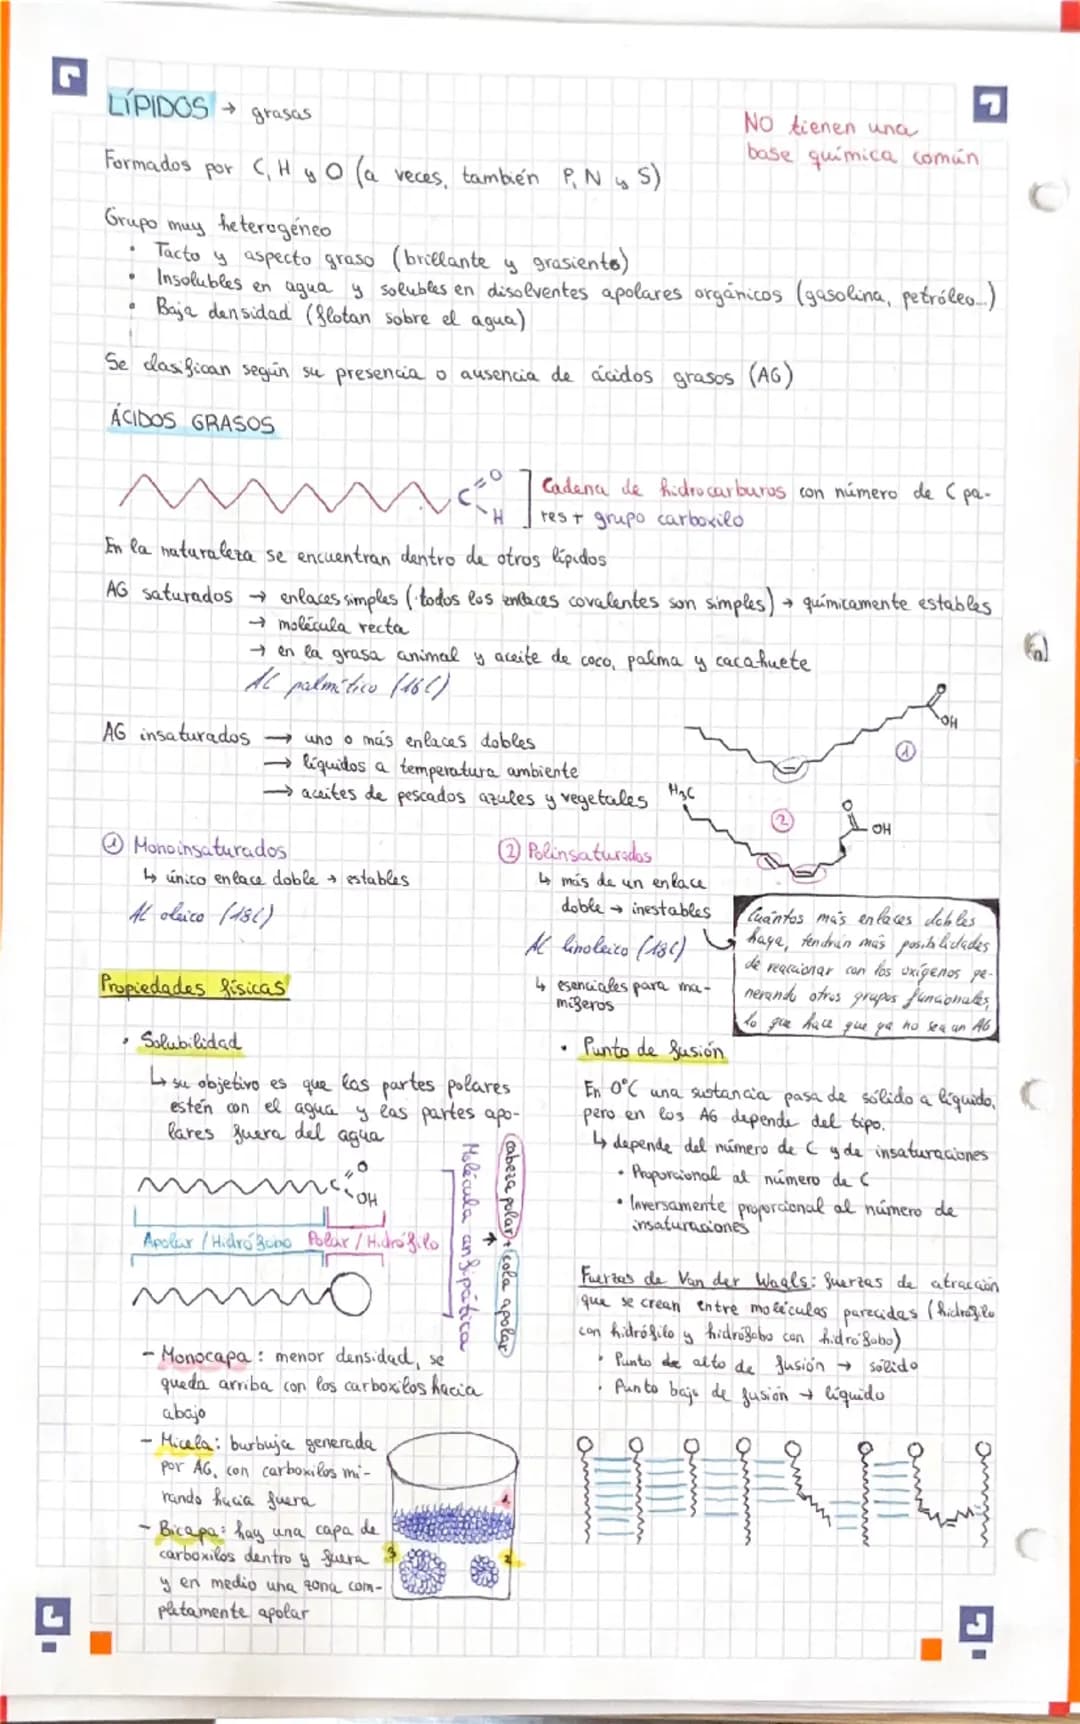 LÍPIDOS → grasas
NO tienen una
base química común
Formados por C, H y O (a veces, también P, N y S)
Grupo muy heterogéneo
• Tacto y aspecto graso (brillante y grasiento)
• Insolubles en agua y solubles en disolventes apolares orgánicos (gasolina, petróleo...)
• Baja densidad (flotan sobre el agua)
Se clasifican según su presencia o ausencia de ácidos grasos (AG)
ÁCIDOS GRASOS
C O H
Cadena de hidrocarburos con número de C pa-
res + grupo carboxilo
En la naturaleza se encuentran dentro de otros lípidos
AG saturados → enlaces simples (todos los enlaces covalentes son simples) → químicamente estables
→ molécula recta
→ en la grasa animal y aceite de coco, palma y cacahuete
AC palmítico (16C)
AG insaturados → uno o más enlaces dobles
→ líquidos a temperatura ambiente
→ aceites de pescados azules y vegetales
O OH
1
H3C
2
O OH
① Monoinsaturados
↳ único enlace doble → estables
AC oleico (18C)
② Polinsaturados
↳ más de un enlace
doble → inestables
AC linoleico (18C)
↳ esenciales para ma-
míferos
Cuántos más enlaces dobles
haya, tendrán más posibilidades
de reaccionar con los oxígenos ge-
nerando otros grupos funcionales,
lo que hace que ya no sea un AG
Propiedades físicas
• Solubilidad
↳ su objetivo es que las partes polares
estén con el agua y las partes apo-
lares fuera del agua
C O OH
Apolar / Hidrófobo Polar / Hidrófilo
cabeza polar + cola apolar
→ Molécula anfipática
- Monocapa: menor densidad, se
queda arriba con los carboxilos hacia
abajo
- Micela: burbuja generada
por AG, con carboxilos mi-
rando hacia fuera
- Bicapa: hay una capa de
carboxilos dentro y fuera
y en medio una zona com-
pletamente apolar
1
3
2
• Punto de fusión
En 0°C una sustancia pasa de sólido a líquido,
pero en los AG depende del tipo.
↳ depende del número de C y de insaturaciones
• Proporcional al número de C
• Inversamente proporcional al número de
insaturaciones
Fuerzas de Van der Waals: fuerzas de atracción
que se crean entre moléculas parecidas (hidrófilo
con hidrófilo y hidrófobo con hidrófobo)
• Punto de alto de fusión → sólido
• Punto bajo de fusión → líquido